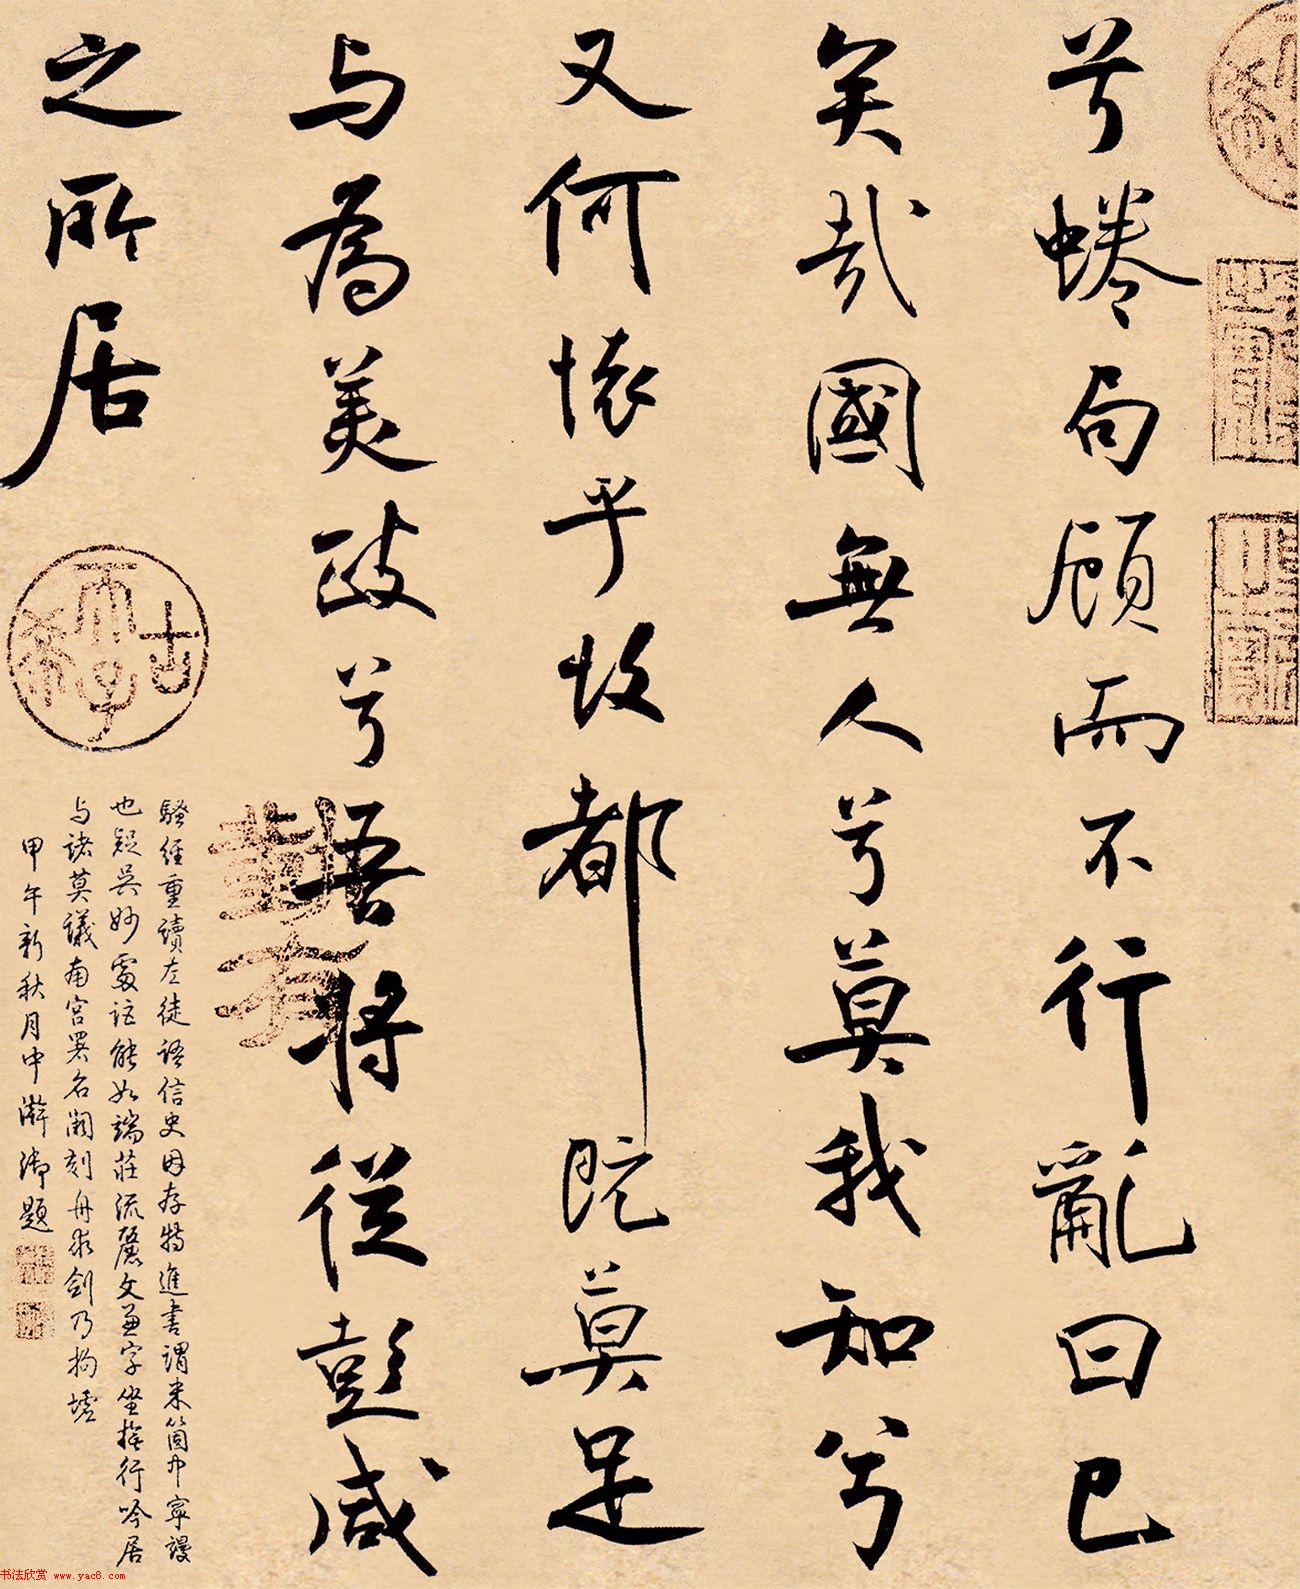 兮蜷句顧而不行亂曰已
矣哉國無人兮莫我知兮
又何懷乎故都既莫足
与為美政兮吾將從彭咸
之所居
古希天子
騷經重讀左徒語信史因存特進書謂米箇中寧謾
也疑吳妙處詎能如端莊流麗文兼字坐挹行吟居
与諸莫議南宮署名闕刻舟求劍乃拘墟
甲午新秋月中澣御題
书法欣赏 www.yac8.com